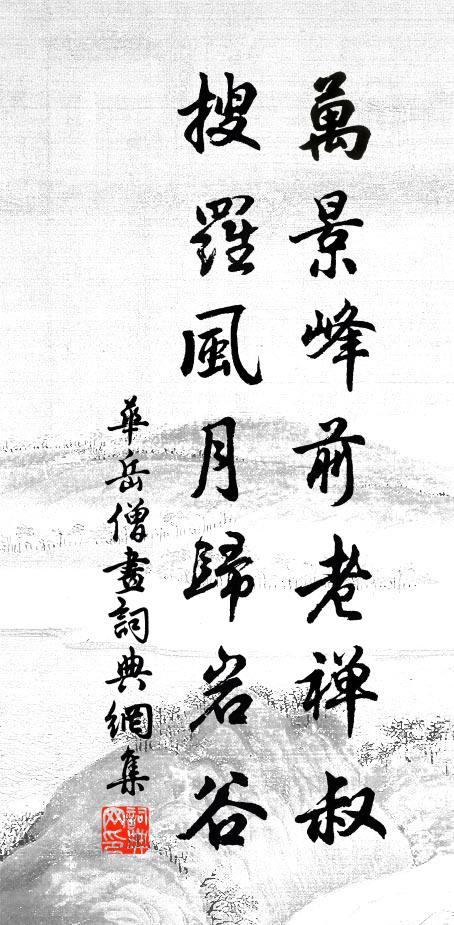 萬景峰前老禅叔
搜羅風月歸岩谷
華岳僧畫詞典網集